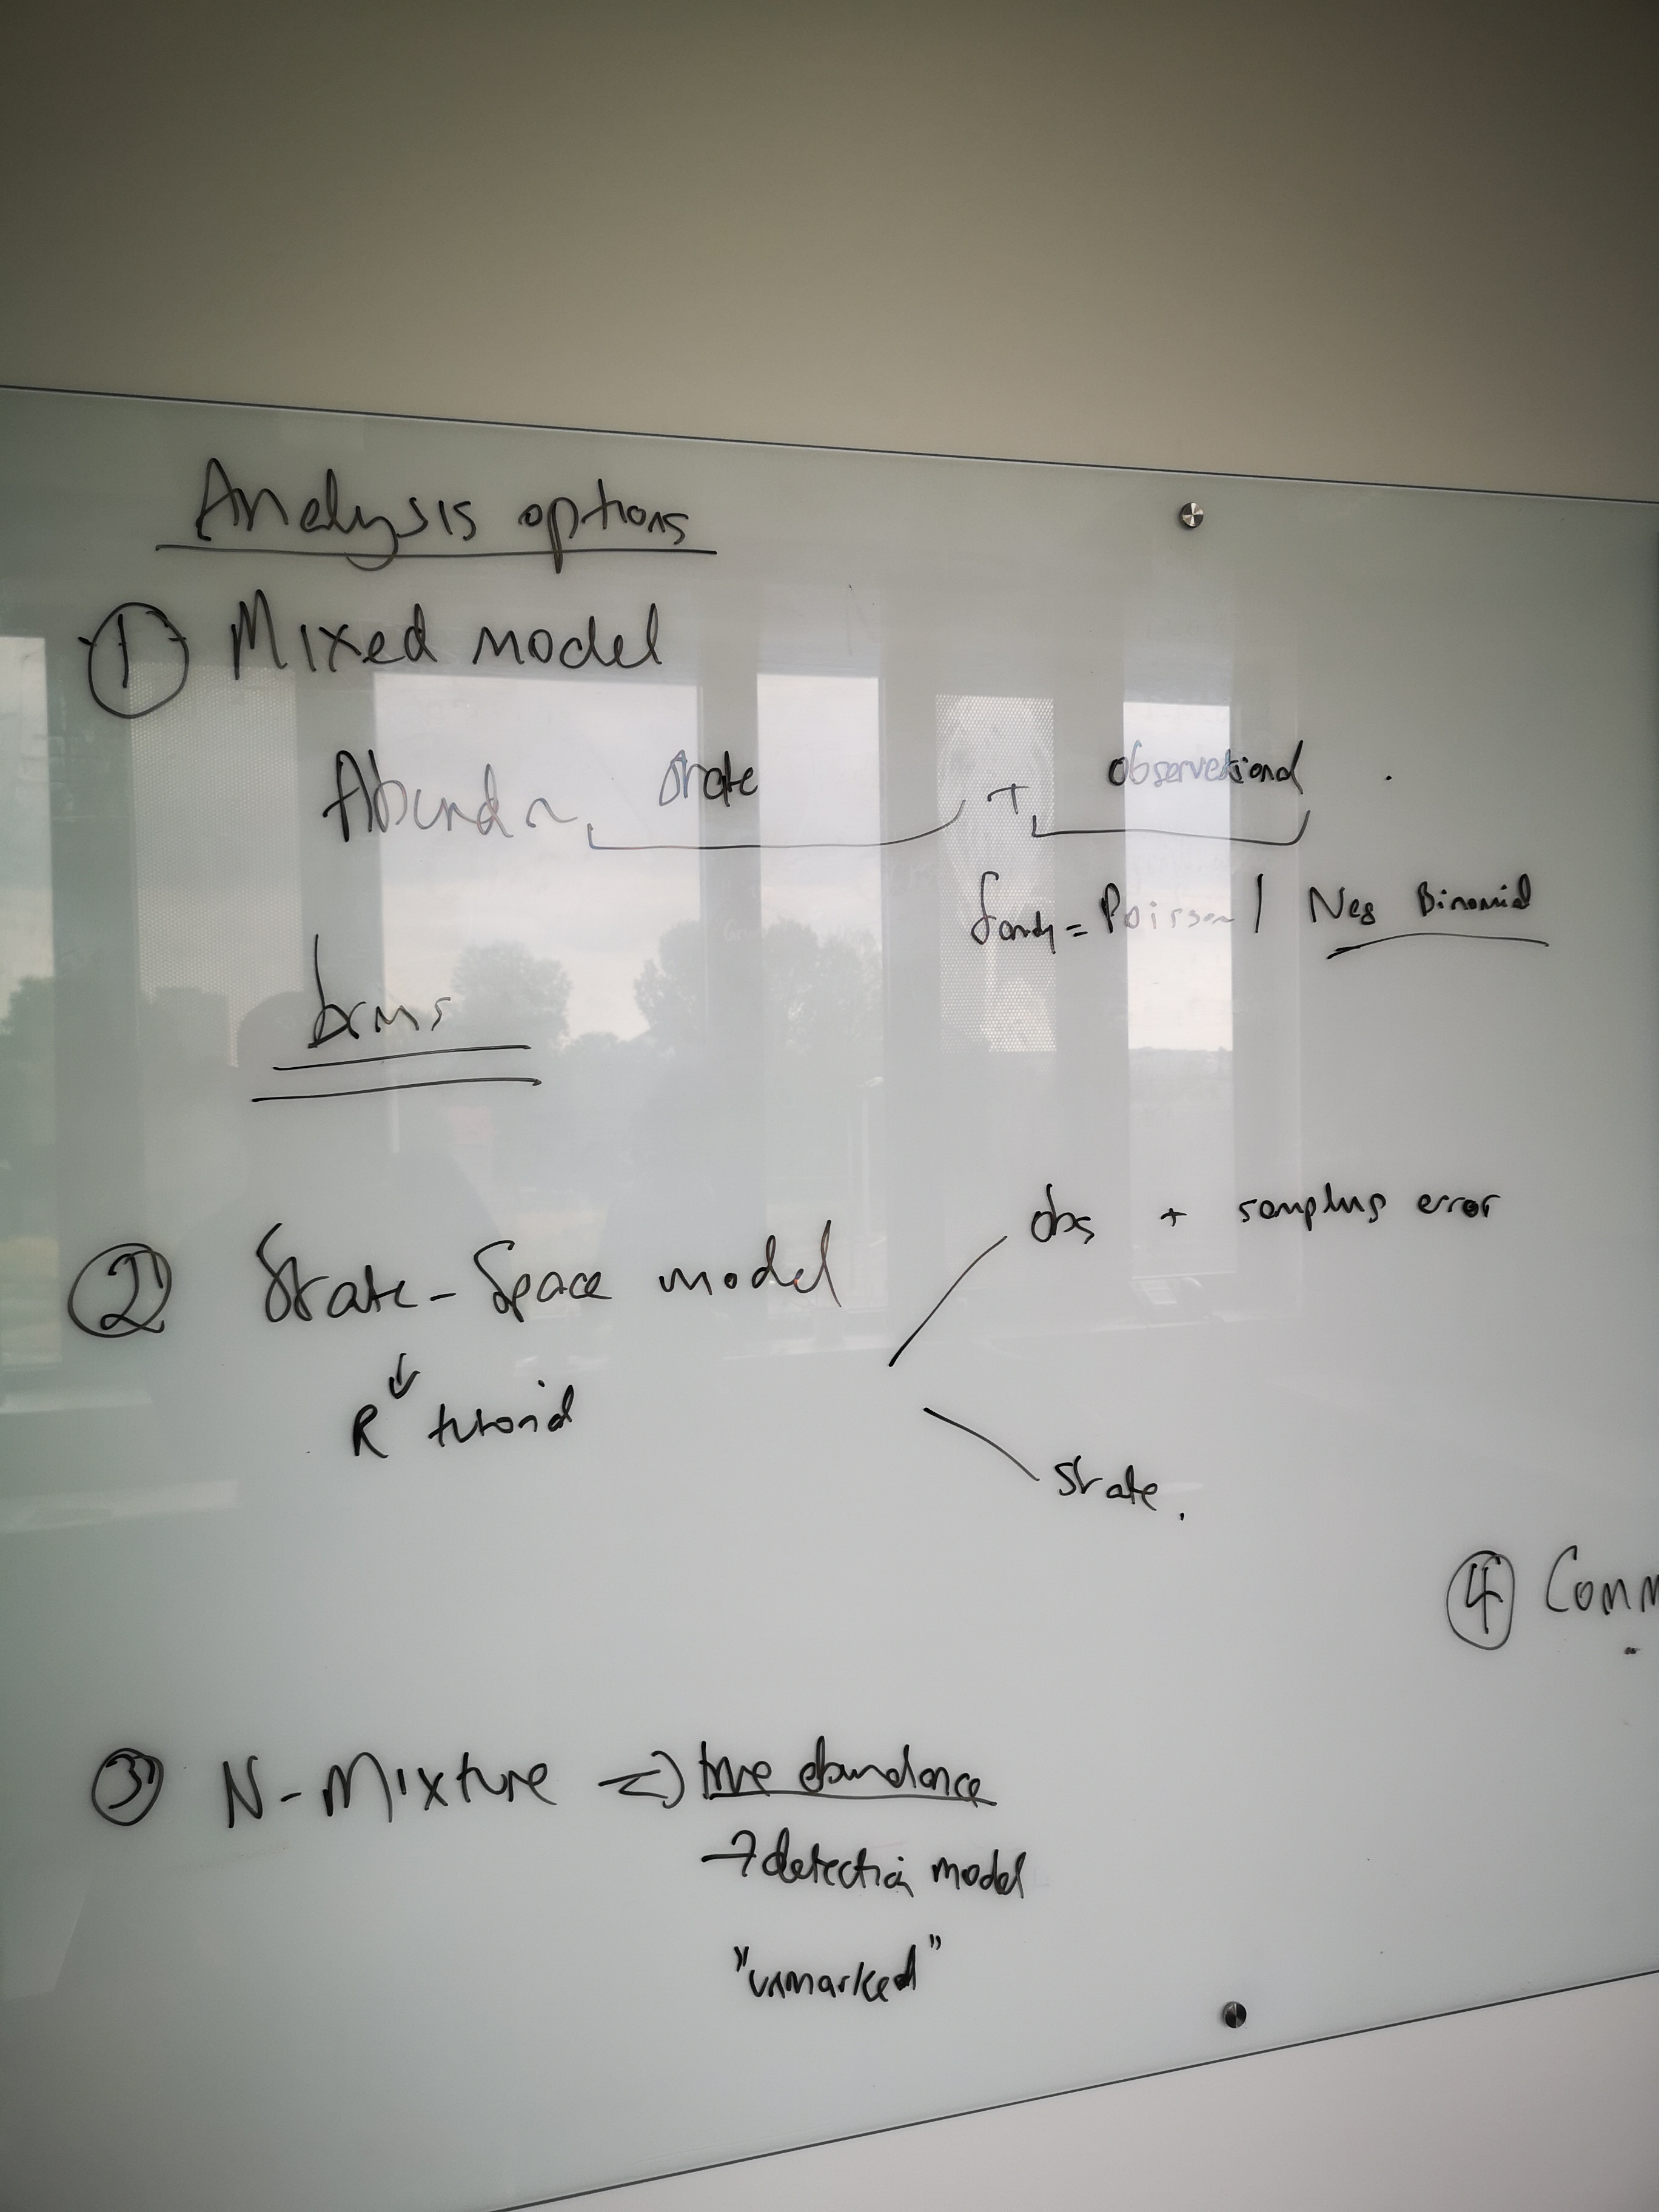 Analysis options
① Mixed model
Abund ~ State + observational
family = Poisson / Neg Binomial
brms
② State-Space model
obs + sampling error
R tutorial
State.
④ Comm
③ N-Mixture => true abundance
→ detection model
"unmarked"